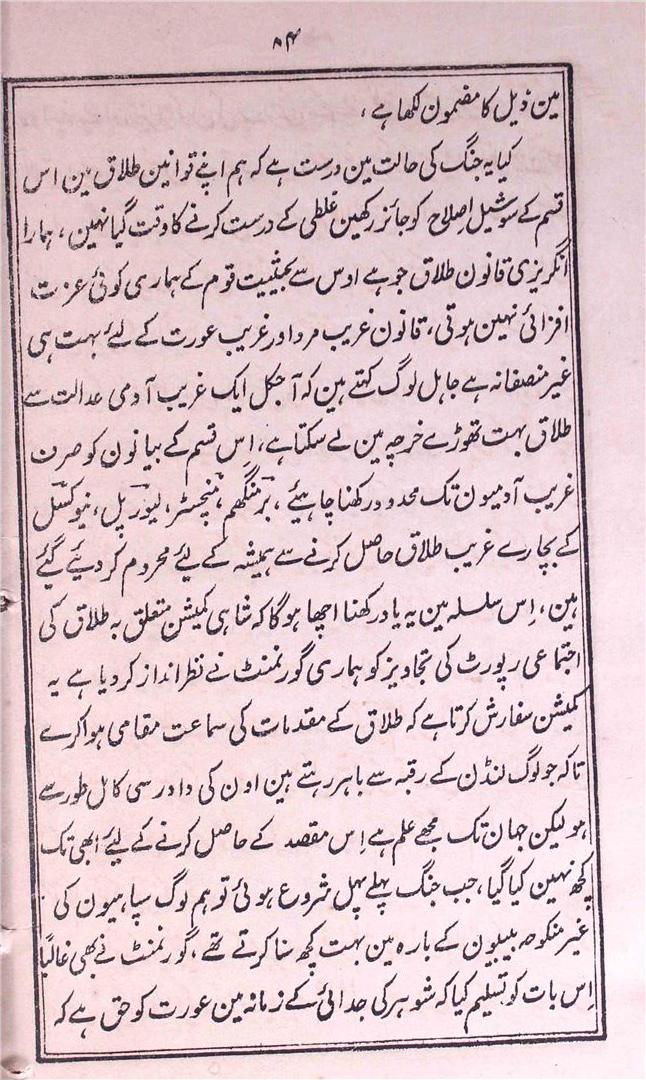 ۸۴
مین ذیل کا مضمون لکھا ہے ،
کیا یہ جنگ کی حالت مین درست ہے کہ ہم اپنے قوانین طلاق مین اس
قسم کے سوشیل اصلاح کو جائز رکھین غلطی کے درست کرنے کا وقت گیا نہین ، ہمارا
انگریزی قانون طلاق جو ہے اوس سے بحیثیت قوم کے ہماری کوئی عزت
افزائی نہین ہوتی ، قانون غریب مرد اور غریب عورت کے لئے بہت ہی
غیر منصفانہ ہے جاہل لوگ کہتے ہین کہ آجکل ایک غریب آدمی عدالت سے
طلاق بہت تھوڑے خرچہ مین لے سکتا ہے ، اِس قسم کے بیانون کو صرف
غریب آدمیون تک محدود رکھنا چاہیئے ، برمنگھم ، منچسٹر ، لیورپل ، نیوکسل
کے بچارے غریب طلاق حاصل کرنے سے ہمیشہ کے لیئے محروم کر دیئے گئے
ہین ، اِس سلسلہ مین یہ یاد رکھنا اچھا ہوگا کہ شاہی کمیشن متعلق بہ طلاق کی
اجتماعی رپورٹ کی تجاویز کو ہماری گورنمنٹ نے نظر انداز کر دیا ہے یہ
کمیشن سفارش کرتا ہے کہ طلاق کے مقدمات کی سماعت مقامی ہوا کرے
تاکہ جو لوگ لنڈن کے رقبہ سے باہر رہتے ہین اون کی دادرسی کامل طور سے
ہو لیکن جہان تک مجھے علم ہے اِس مقصد کے حاصل کرنے کے لیئے ابھی تک
کچھ نہین کیا گیا ، جب جنگ پہلے پہل شروع ہوئی تو ہم لوگ سپاہیون کی
غیر منکوحہ بیبیون کے بارہ مین بہت کچھ سنا کرتے تھے ، گورنمنٹ نے بھی غالباً
اِس بات کو تسلیم کیا کہ شوہر کی جدائی کے زمانہ مین عورت کو حق ہے کہ